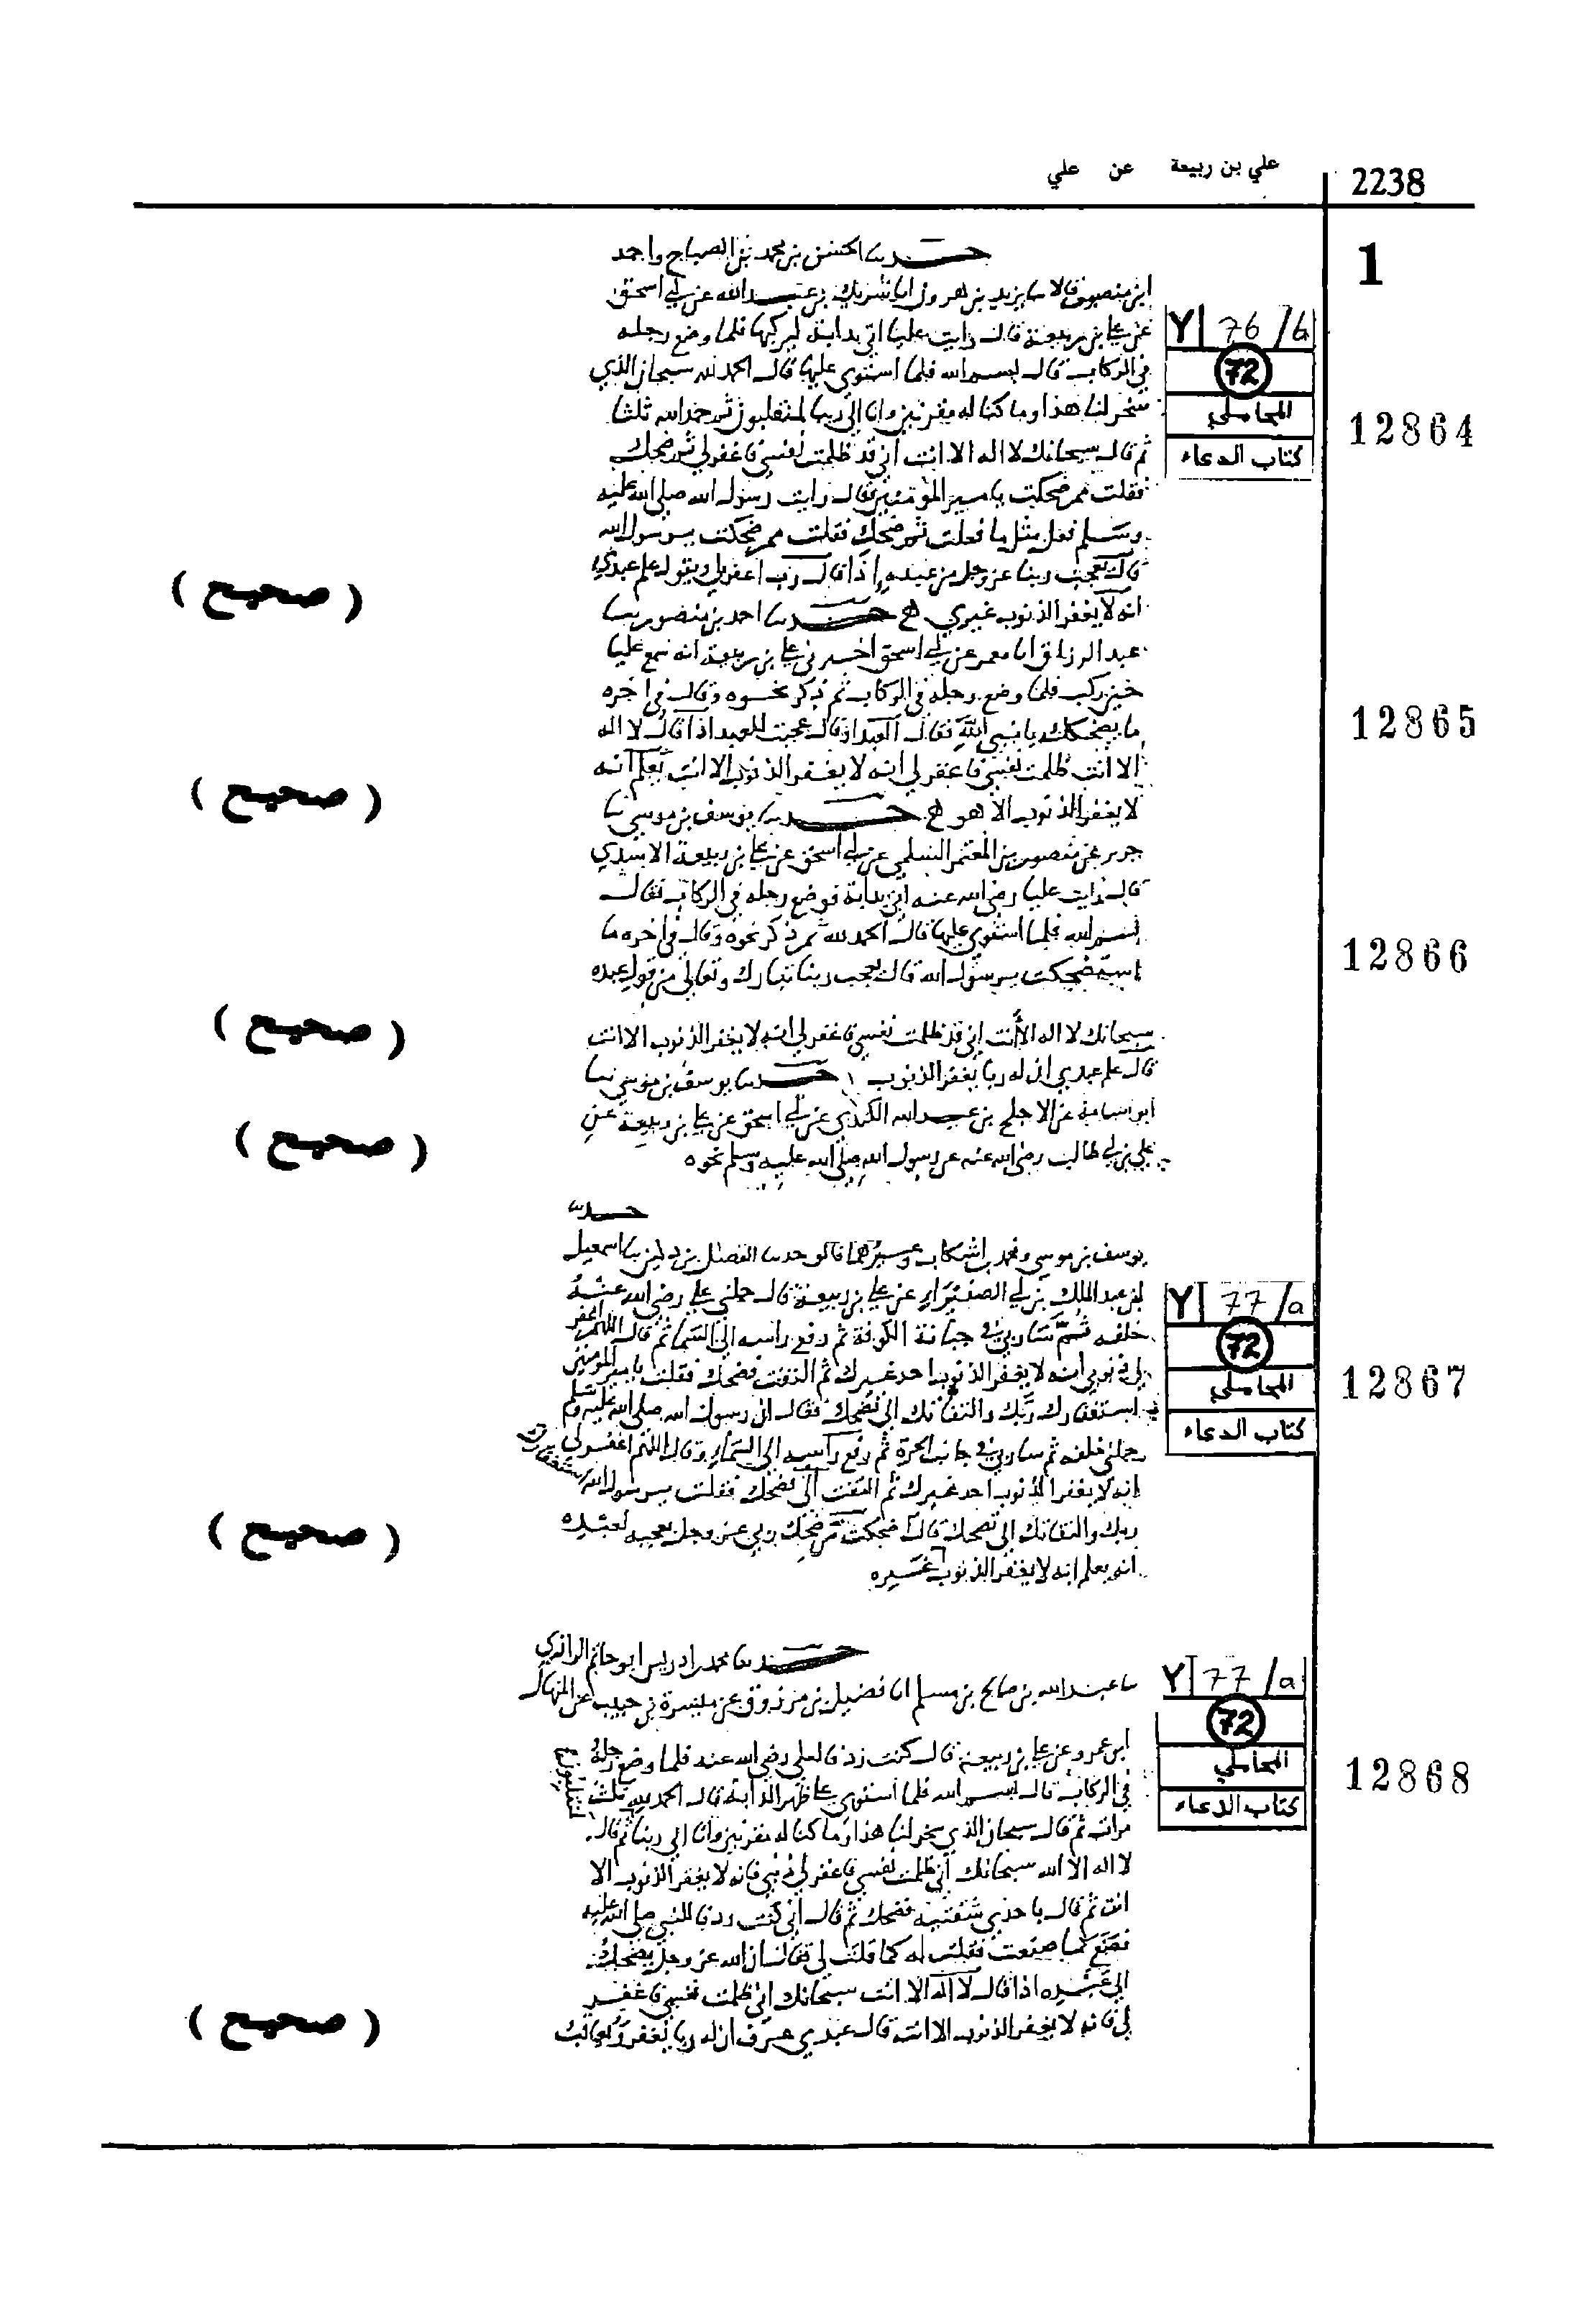 2238
علي بن ربيعة عن علي
1
حدثنا الحسن بن محمد بن الصباح واحمد
ابن منصور قالا سا يزيد بن هرون انا شريك بن عبد الله عن ابي اسحق
عن علي بن ربيعة قال رايت عليا اتي بدابة ليركبها فلما وضع رجله
Y 76/b
72
المحاملي
كتاب الدعاء
في الركاب قال بسم الله فلما استوى عليها قال الحمد لله سبحان الذي
سخر لنا هذا وما كنا له مقرنين وانا الى ربنا لمنقلبون ثم حمد الله ثلثا
12864
ثم قال سبحانك لا اله الا انت اني قد ظلمت نفسي فاغفر لي ثم ضحك
فقلت مم ضحكت يا مير المؤمنين قال رايت رسول الله صلى الله عليه
وسلم فعل مثل ما فعلت ثم ضحك فقلت مم ضحكت يرسول الله
قال تعجب ربنا عز وجل من عبده إذا قال رب اغفر لي ويقول علم عبدي
( صحيح )
انه لا يغفر الذنوب غيري حدثنا احمد بن منصور سا
عبد الرزاق انا معمر عن ابي اسحق اخبرني علي بن ربيعة انه سمع عليا
حين ركب فلما وضع رجله في الركاب ثم ذكر نحوه وقال في اخره
12865
ما يضحكك يا نبي الله فقال العبد اذ قال عجبت للعبد اذا قال لا اله
الا انت ظلمت نفسي فاغفر لي انه لا يغفر الذنوب الا انت يعلم انه
( صحيح )
لا يغفر الذنوب الا هو حدثنا يوسف بن موسى سا
جرير عن منصور بن المعتمر السلمي عن ابي اسحق عن علي بن ربيعة الاسدي
قال رايت عليا رضي الله عنه اتي بدابة فوضع رجله في الركاب فقال
بسم الله فلما استوى عليها قال الحمد لله ثم ذكر نحوه وقال في اخره ما
12866
استضحكت يرسول الله قال يعجب ربنا تبارك وتعالى من قول عبده
سبحانك لا اله الا انت اني قد ظلمت نفسي فاغفر لي انه لا يغفر الذنوب الا انت
( صحيح )
قال علم عبدي ان له ربا يغفر الذنوب حدثنا يوسف بن موسى سا
ابو اسامة عن الاجلح بن عبد الله الكندي عن ابي اسحق عن علي بن ربيعة عن
علي بن ابي طالب رضي الله عنه عن رسول الله صلى الله عليه وسلم نحوه
( صحيح )
حدثنا
يوسف بن موسى ومحمد بن اشكاب وغيرهما قالوا حدسا الفضل بن دكين سا اسمعيل
ابن عبد الملك بن ابي الصفيراء عن علي بن ربيعة قال حملني علي رضي الله عنه
Y 77/a
72
المحاملي
كتاب الدعاء
خلفه ثم سار بي في جبانة الكوفة ثم رفع راسه الى السما ثم قال اللهم اغفر
لي ذنوبي انه لا يغفر الذنوب احد غيرك ثم التفت فضحك فقلت يا مير المومنين
12867
استغفارك ربك والتفاتك الي تضحك فقال ان رسول الله صلى الله عليه وسلم
حملني خلفه ثم سار بي في جانب الحرة ثم رفع راسه الى السماء وقال اللهم اغفر لي
انه لا يغفر الذنوب احد غيرك ثم التفت الي يضحك فقلت يرسول الله استغفارك
ربك والتفاتك الي تضحك قال ضحكت من ضحك ربي عز وجل يعجبه لعبده
( صحيح )
انه يعلم انه لا يغفر الذنوب غيره
حدثنا محمد بن ادريس ابو حاتم الرازي
سا عبد الله بن صالح بن مسلم انا فضيل بن مرزوق عن ميسرة بن حبيب عن المنهال
Y 77/a
72
المحاملي
كتاب الدعاء
ابن عمرو عن علي بن ربيعة قال كنت ردفا لعلي رضي الله عنه فلما وضع رجله
في الركاب قال بسم الله فلما استوى على ظهر الدابة قال الحمد لله ثلث
12868
مرات ثم قال سبحان الذي سخر لنا هذا وما كنا له مقرنين وانا الى ربنا لمنقلبون ثم قال
لا اله الا الله سبحانك اني ظلمت نفسي فاغفر لي ذنبي فانه لا يغفر الذنوب الا
انت ثم قال باحدى شفتيه فضحك ثم قال اني كنت ردفا للنبي صلى الله عليه
فصنع كما صنعت فقلت له كما قلت لي فقال ان الله عز وجل يضحك
الى عبده اذا قال لا اله الا انت سبحانك اني ظلمت نفسي فاغفر
لي فانه لا يغفر الذنوب الا انت قال عبدي عرف ان له ربا يغفر ويعاقب
( صحيح )